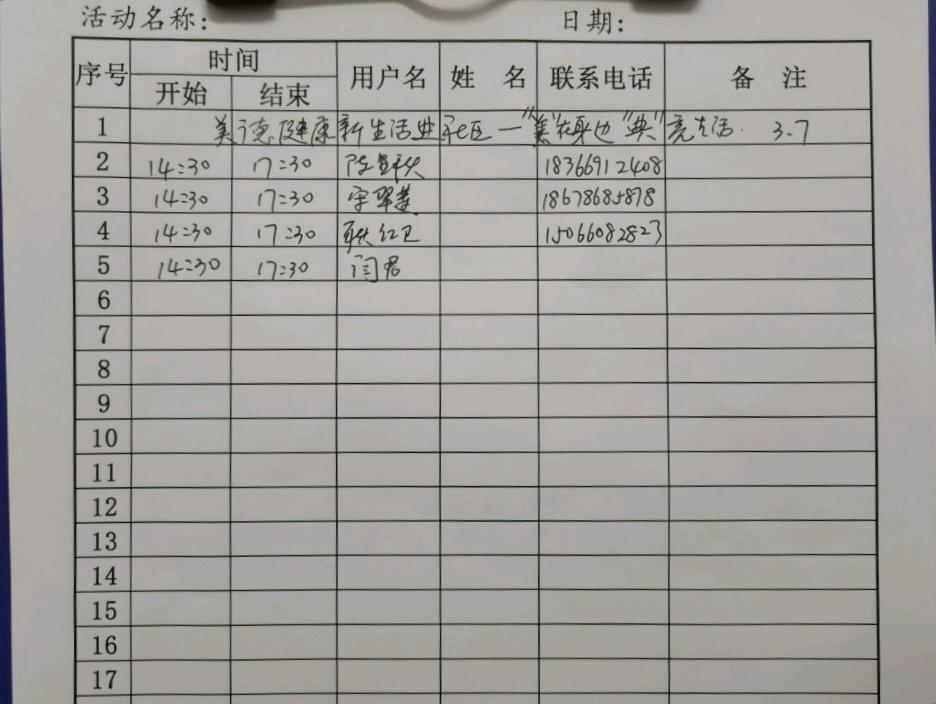 活动名称: 日期:
序号 时间 用户名 姓 名 联系电话 备 注
开始 结束
1 美德健康新生活进社区—"集"在身边"典"亮生活. 3.7
2 14:30 17:30 18366912408
3 14:30 17:30 宋翠 18678685878
4 14:30 17:30 耿红卫 15066082823
5 14:30 17:30 闫君
6
7
8
9
10
11
12
13
14
15
16
17